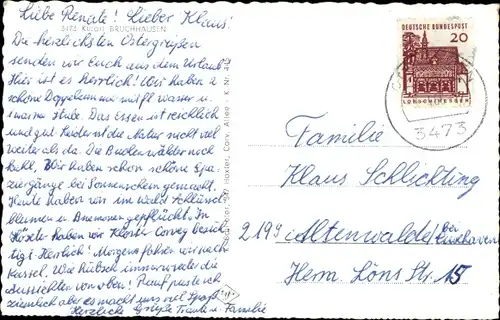 Liebe Renate! Lieber Klaus!
3473 Kurort BRUCHHAUSEN
Die herzlichsten Ostergrüßen
senden wir Euch aus dem Urlaub
Hier ist es herrlich! Wir haben 2
schöne Doppelzimmer mit fl. wasser u.
warme Stube. Das Essen ist reichlich
und gut. Leider ist die Natur nicht viel
weiter als da. Die Buchenwälder noch
kahl, Wir haben schon schöne Spa-
ziergänge bei Sonnenschein gemacht.
Heute haben wir im Wald Schlüssel-
blumen u. Anemonen gepflückt. In
Höxter haben wir Kloster Corvey besich-
tigt. Herrlich! Morgen fahren wir nach
Kassel. Wie hübsch immer wieder die
Aussichten von oben! Rauf puste ich
ziemlich aber es macht uns viel Spaß
Herzliche Grüße Familie
DEUTSCHE BUNDESPOST
20
LORSCH/HESSEN
3473
Familie
Klaus Schlichting
2199 Altenwalde/bei
Cuxhaven
Herm. Löns Str. 15